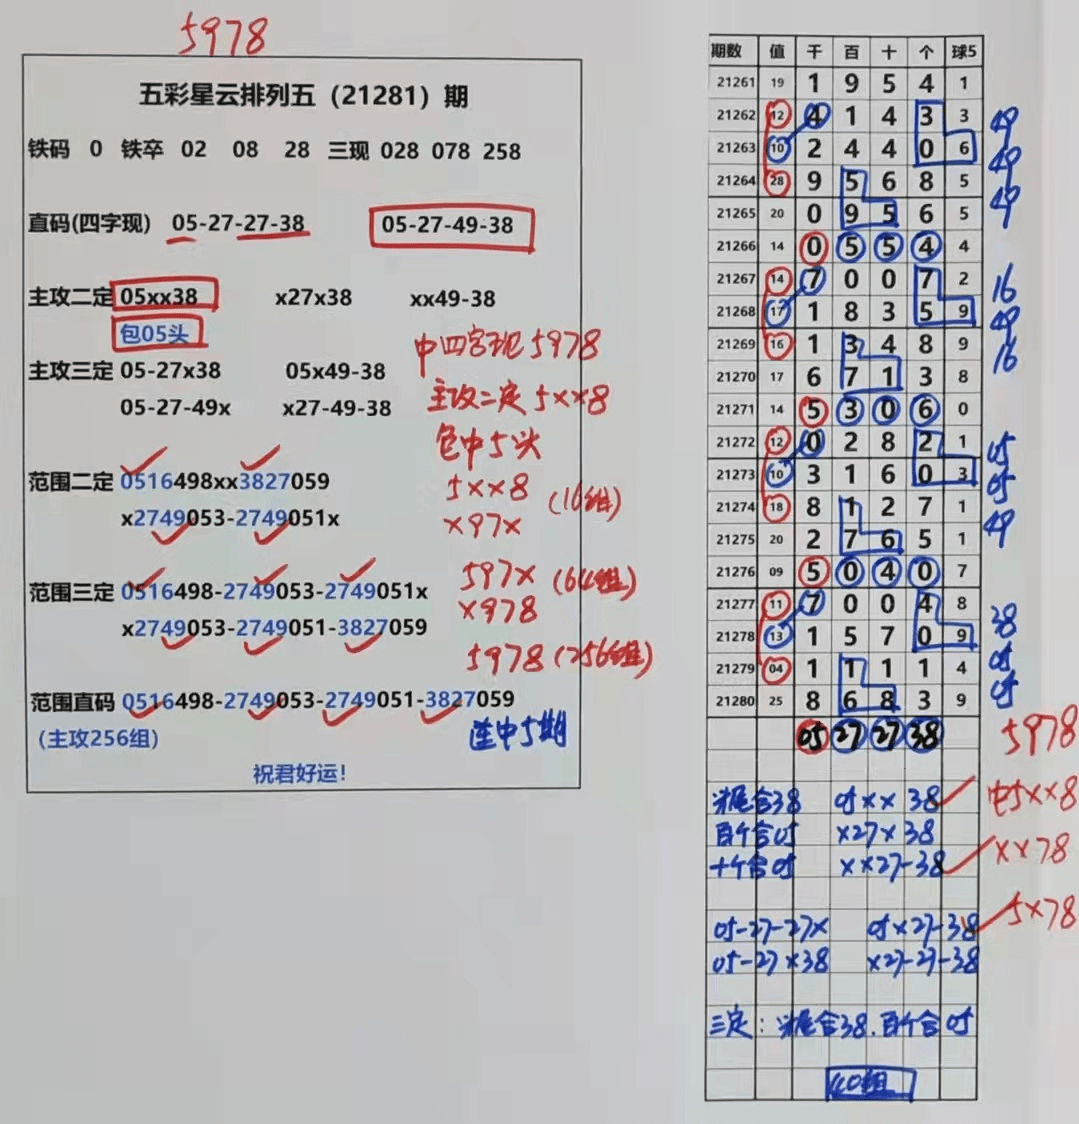 5978
五彩星云排列五（21281）期
铁码 0 铁卒 02 08 28 三现 028 078 258
直码(四字现) 05-27-27-38 05-27-49-38
主攻二定 05xx38 x27x38 xx49-38
包05头
中四字现5978
主攻三定 05-27x38 05x49-38
主攻二定5xx8
05-27-49x x27-49-38
包中5头
范围二定 0516498xx3827059
5xx8 (16组)
x2749053-2749051x
x97x
范围三定 0516498-2749053-2749051x
597x (64组)
x2749053-2749051-3827059
x978
5978 (256组)
范围直码 0516498-2749053-2749051-3827059
(主攻256组)
连中5期
祝君好运！
期数 值 千 百 十 个 球5
21261 19 1 9 5 4 1
21262 12 4 1 4 3 3 49
21263 10 2 4 4 0 6 49
21264 28 9 5 6 8 5 49
21265 20 0 9 5 6 5
21266 14 0 5 5 4 4
21267 14 7 0 0 7 2 16
21268 17 1 8 3 5 9 49
21269 16 1 3 4 8 9 16
21270 17 6 7 1 3 8
21271 14 5 3 0 6 0
21272 12 0 2 8 2 1 05
21273 10 3 1 6 0 3 05
21274 18 8 1 2 7 1 49
21275 20 2 7 6 5 1
21276 09 5 0 4 0 7
21277 11 7 0 0 4 8 38
21278 13 1 5 7 0 9
21279 04 1 1 1 1 4 05
21280 25 8 6 8 3 9 05
05 27 27 38 5978
头尾合38 05xx38 中5xx8
百个合05 x27x38
十个合05 xx27-38 xx78
05-27-27x 05x27-38 5x78
05-27x38 x27-27-38
三定：头尾合38.百个合05
40组